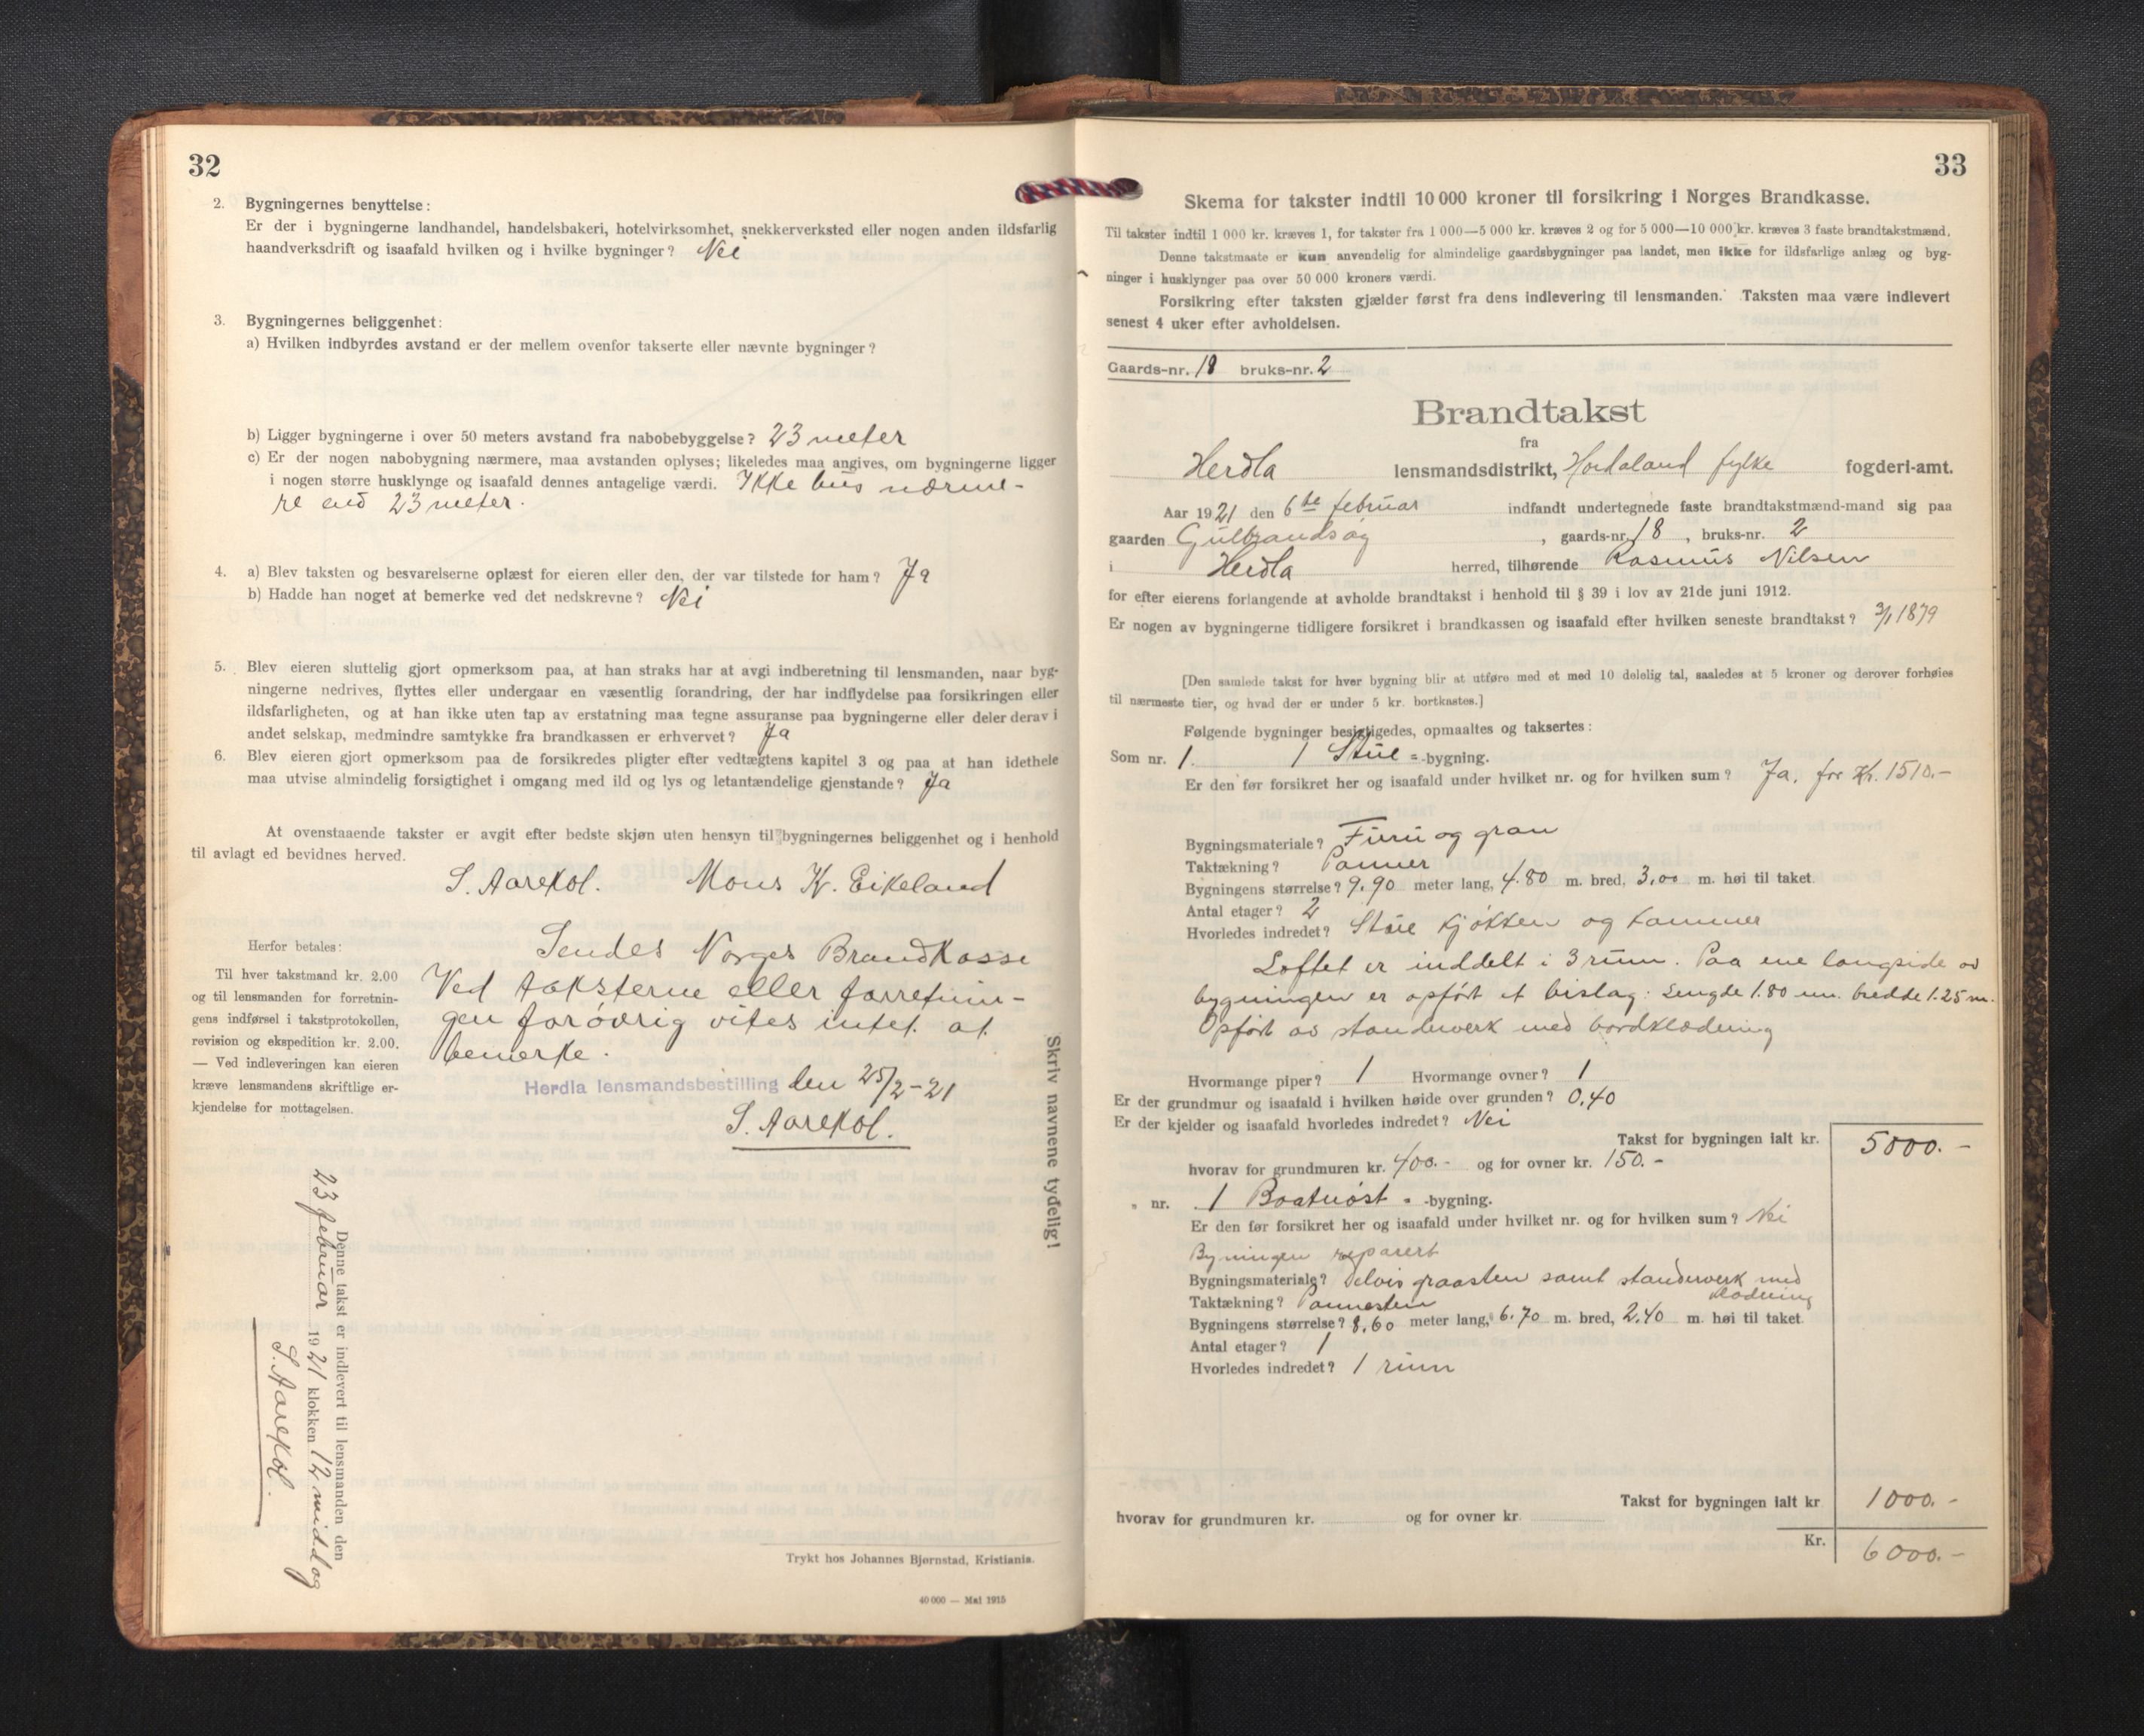 32
2. Bygningernes benyttelse:
Er der i bygningerne landhandel, handelsbakeri, hotelvirksomhet, snekkerverksted eller nogen anden ildsfarlig
haandverksdrift og isaafald hvilken og i hvilke bygninger? Nei
3. Bygningernes beliggenhet:
a) Hvilken indbyrdes avstand er der mellem ovenfor takserte eller nævnte bygninger?
b) Ligger bygningerne i over 50 meters avstand fra nabobebyggelse? 23 meter
c) Er der nogen nabobygning nærmere, maa avstanden oplyses; likeledes maa angives, om bygningerne ligger
i nogen større husklynge og isaafald dennes antagelige værdi. Ikke hus nærme-
re end 23 meter.
4. a) Blev taksten og besvarelserne oplæst for eieren eller den, der var tilstede for ham? Ja
b) Hadde han noget at bemerke ved det nedskrevne? Nei
5. Blev eieren sluttelig gjort opmerksom paa, at han straks har at avgi indberetning til lensmanden, naar byg-
ningerne nedrives, flyttes eller undergaar en væsentlig forandring, der har indflydelse paa forsikringen eller
ildsfarligheten, og at han ikke uten tap av erstatning maa tegne assuranse paa bygningerne eller deler derav i
andet selskap, medmindre samtykke fra brandkassen er erhvervet? Ja
6. Blev eieren gjort opmerksom paa de forsikredes pligter efter vedtægtens kapitel 3 og paa at han idethele
maa utvise almindelig forsigtighet i omgang med ild og lys og letantændelige gjenstande? Ja
At ovenstaaende takster er avgit efter bedste skjøn uten hensyn til bygningernes beliggenhet og i henhold
til avlagt ed bevidnes herved.
S. Aarekol. Mons K. Eikeland
Herfor betales:
Til hver takstmand kr. 2.00
og til lensmanden for forretnin-
gens indførsel i takstprotokollen,
revision og ekspedition kr. 2.00.
— Ved indleveringen kan eieren
kræve lensmandens skriftlige er-
kjendelse for mottagelsen.
Sendes Norges Brandkasse
Ved taksterne eller forretnin-
gen forøvrig vites intet at
bemerke.
Herdla lensmandsbestilling den 25/2-21
S. Aarekol.
Skriv navnene tydelig!
Denne takst er indlevert til lensmanden den
23 februar 1921 klokken 12 middag
S. Aarekol.
Trykt hos Johannes Bjørnstad, Kristiania.
40 000 — Mai 1915
33
Skema for takster indtil 10 000 kroner til forsikring i Norges Brandkasse.
Til takster indtil 1 000 kr. kræves 1, for takster fra 1 000—5 000 kr. kræves 2 og for 5 000—10 000 kr. kræves 3 faste brandtakstmænd.
Denne takstmaate er kun anvendelig for almindelige gaardsbygninger paa landet, men ikke for ildsfarlige anlæg og byg-
ninger i husklynger paa over 50 000 kroners værdi.
Forsikring efter taksten gjælder først fra dens indlevering til lensmanden. Taksten maa være indlevert
senest 4 uker efter avholdelsen.
Gaards-nr. 18 bruks-nr. 2
Brandtakst
fra
Herdla lensmandsdistrikt, Hordaland fylke fogderi-amt.
Aar 1921 den 6te februar indfandt undertegnede faste brandtakstmænd-mand sig paa
gaarden Gulbrandsøy, gaards-nr. 18, bruks-nr. 2
i Herdla herred, tilhørende Rasmus Nilsen
for efter eierens forlangende at avholde brandtakst i henhold til § 39 i lov av 21de juni 1912.
Er nogen av bygningerne tidligere forsikret i brandkassen og isaafald efter hvilken seneste brandtakst? 3/1 1879
[Den samlede takst for hver bygning blir at utføre med et med 10 delelig tal, saaledes at 5 kroner og derover forhøies
til nærmeste tier, og hvad der er under 5 kr. bortkastes.]
Følgende bygninger besigtigedes, opmaaltes og taksertes:
Som nr. 1. 1 Stue-bygning.
Er den før forsikret her og isaafald under hvilket nr. og for hvilken sum? Ja, for Kr. 1510.-
Bygningsmateriale? Furu og gran
Taktækning? Panner
Bygningens størrelse? 9.90 meter lang, 4.80 m. bred, 3,00 m. høi til taket.
Antal etager? 2
Hvorledes indredet? Stue kjøkken og kammer
Loftet er inddelt i 3 rum. Paa ene langside av
bygningen er opført et bislag: Lengde 1.80 m. bredde 1.25 m.
Opført av standerverk med bordklædning
Hvormange piper? 1 Hvormange ovner? 1
Er der grundmur og isaafald i hvilken høide over grunden? 0,40
Er der kjelder og isaafald hvorledes indredet? Nei
Takst for bygningen ialt kr. 5000.-
hvorav for grundmuren kr. 400.- og for ovner kr. 150.-
" nr. 1 Baatnøst-bygning.
Er den før forsikret her og isaafald under hvilket nr. og for hvilken sum? Nei
Bygningen reparert
Bygningsmateriale? Delvis graasten samt standerverk med
klædning
Taktækning? Pannesten
Bygningens størrelse? 8,60 meter lang, 6.70 m. bred, 2.40 m. høi til taket.
Antal etager? 1
Hvorledes indredet? 1 rum
Takst for bygningen ialt kr. 1000.-
hvorav for grundmuren kr. og for ovner kr.
Kr. 6000.-